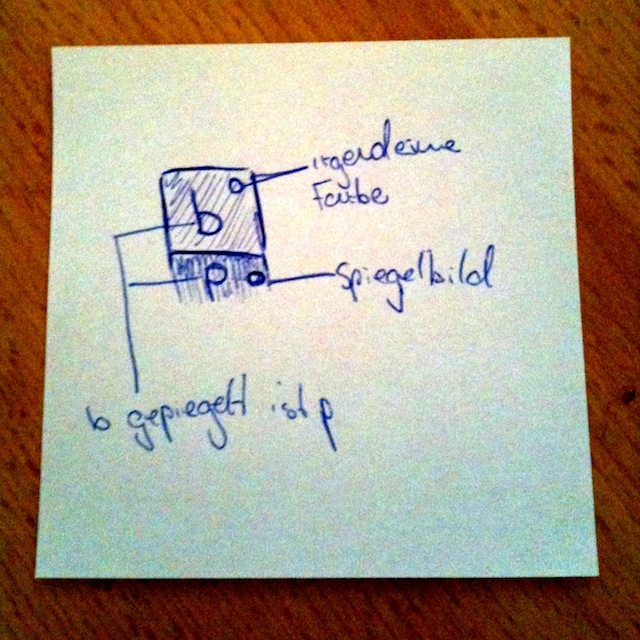 irgendeine
Farbe
b
p
Spiegelbild
b gepiegelt ist p